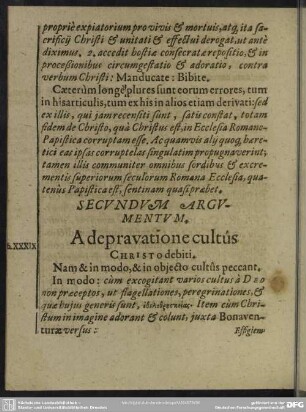 propriè expiatorium pro vivis & mortuis, atq́; ita sa-
crificij Christi & unitati & effectui derogat, ut ante
diximus. 2. accedit hostiæ consecratæ repositio, & in
processionibus circumgestatio & adoratio, contra
verbum Christi: Manducate: Bibite.
Cæterùm longè plures sunt eorum errores, tum
in his articulis, tum ex his in alios etiam derivati: sed
ex illis, qui jam recensiti sunt, satis constat, totam
fidem de Christo, quà Christus est, in Ecclesia Romano-
Papistica corruptam esse. Ac quamvis alij quoq́, hære-
tici eas ipsas corruptelas singulatim propugnaverint,
tamen illis communiter omnibus sordibus & excre-
mentis superiorum seculorum Romana Ecclesia, qua-
tenùs Papistica est, sentinam quasi præbet.
SECVNDVM ARGV-
MENTVM.
§.XXXIX
A depravatione cultûs
CHRISTO debiti.
Nam & in modo, & in objecto cultûs peccant.
In modo: cùm excogitant varios cultus à DEO
non præceptos, ut flagellationes, peregrinationes, &
quæ hujus generis sunt, ἐθελοθρησκείας. Item cùm Chri-
stum in imagine adorant & colunt, juxta Bonaven-
turæ versus:
Effigiem